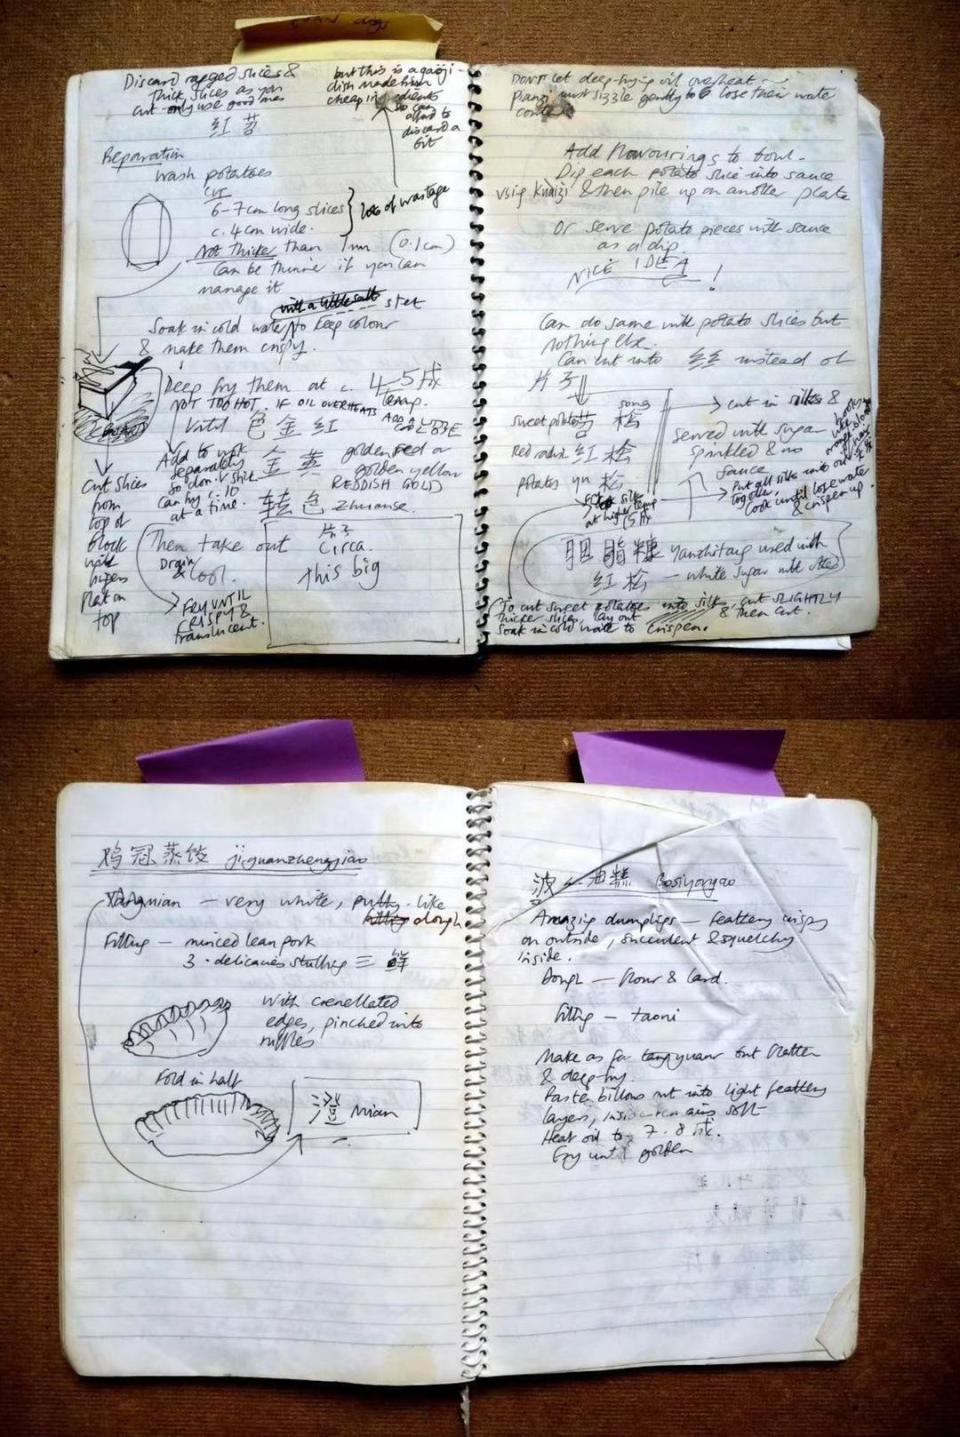 Discard ragged slices &
thick slices as you
cut - only use good ones
but this is a gaoji
dish made from
cheap ingredients
so can
afford to
discard a
bit
红苕
Preparation
Wash potatoes
cut
6-7cm long slices
c. 4cm wide.
lots of wastage
Not thicker than 1mm (0.1cm)
Can be thinner if you can
manage it
with a little salt stet
Soak in cold water to keep colour
& make them crispy.
Deep fry them at c. 4-5成
temp.
NOT TOO HOT, IF OIL OVERHEATS
Until 色金红
金黄
golden red or
golden yellow
REDDISH GOLD
转色 zhuanse.
Add to wok
separately
so don't stick
can fry c. 10
at a time.
Cut slices
from
top of
block
with
knife
flat on
top
Then take out
Drain
& cool.
FRY UNTIL
CRISPY &
translucent.
片子
Circa.
this big
DON'T let deep-frying oil overheat -
Pianzi must sizzle gently to lose their water
content
Add flavourings to bowl.
Dip each potato slice into sauce
using kuaizi & then pile up on another plate
Or serve potato pieces with sauce
as a dip
NICE IDEA !
Can do same with potato slices but
nothing else.
Can cut into 丝 instead of
片子
song
sweet potato 苕松
Red radish 红松
potatoes yu 松
silk
at higher temp
(5成)
cut in silks &
served with sugar
sprinkled & no
sauce
Put all silks into oil
together.
Cook until lose water
& crispen up.
胭脂糖 yanzhitang used with
红松 - white sugar with other
To cut sweet potatoes into silk, cut SLIGHTLY
thicker slices, lay out & then cut.
Soak in cold water to crispen.
鸡冠蒸饺 jiguanzhengjiao
Dengmian - very white, putty-like
dough
Filling - minced lean pork
3-delicacies stuffing 三鲜
With crenellated
edges, pinched into
ruffles
Fold in half
澄 mian
波丝油糕 Bosiyougao
Amazing dumplings - feathery crispy
on outside, succulent & squelchy
inside.
Dough - flour & lard.
Filling - taoni
Make as for tangyuan but flatten
& deep-fry.
Paste billows out into light feathery
layers, inside remains soft
Heat oil to 7-8成.
Fry until golden